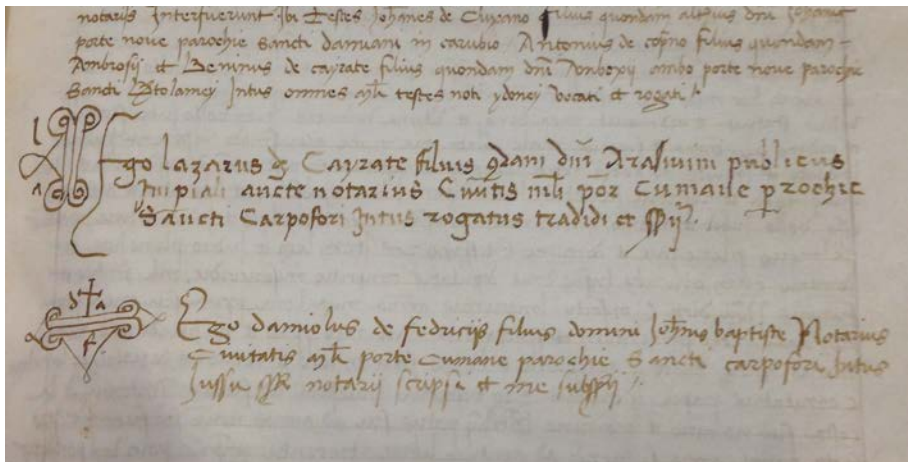 notariis Interfuerunt Ibi Testes Johannes de filius quondam dni
porte nove parochie Sancti damiani in carubio Antonius de filius quondam
Ambrosij et Beninus de cayrate filius quondam dni Ambroxij ambo porte nove parochie
Sancti Intus omnes mli testes noti ydoney vocati et rogati
Ego lazarus de Cayrate filius qdam dni publicus
Impiali aucte notarius Civitis mli por Cumane prochie
Sancti Carpofori Intus rogatus tradidi et
L A
d A
F
Ego damiolus de fedriciis filius domini Johannis baptiste Notarius
Civitatis mli porte Cumane parochie Sancti carpofori Intus
Jussu notarii scripsi et me